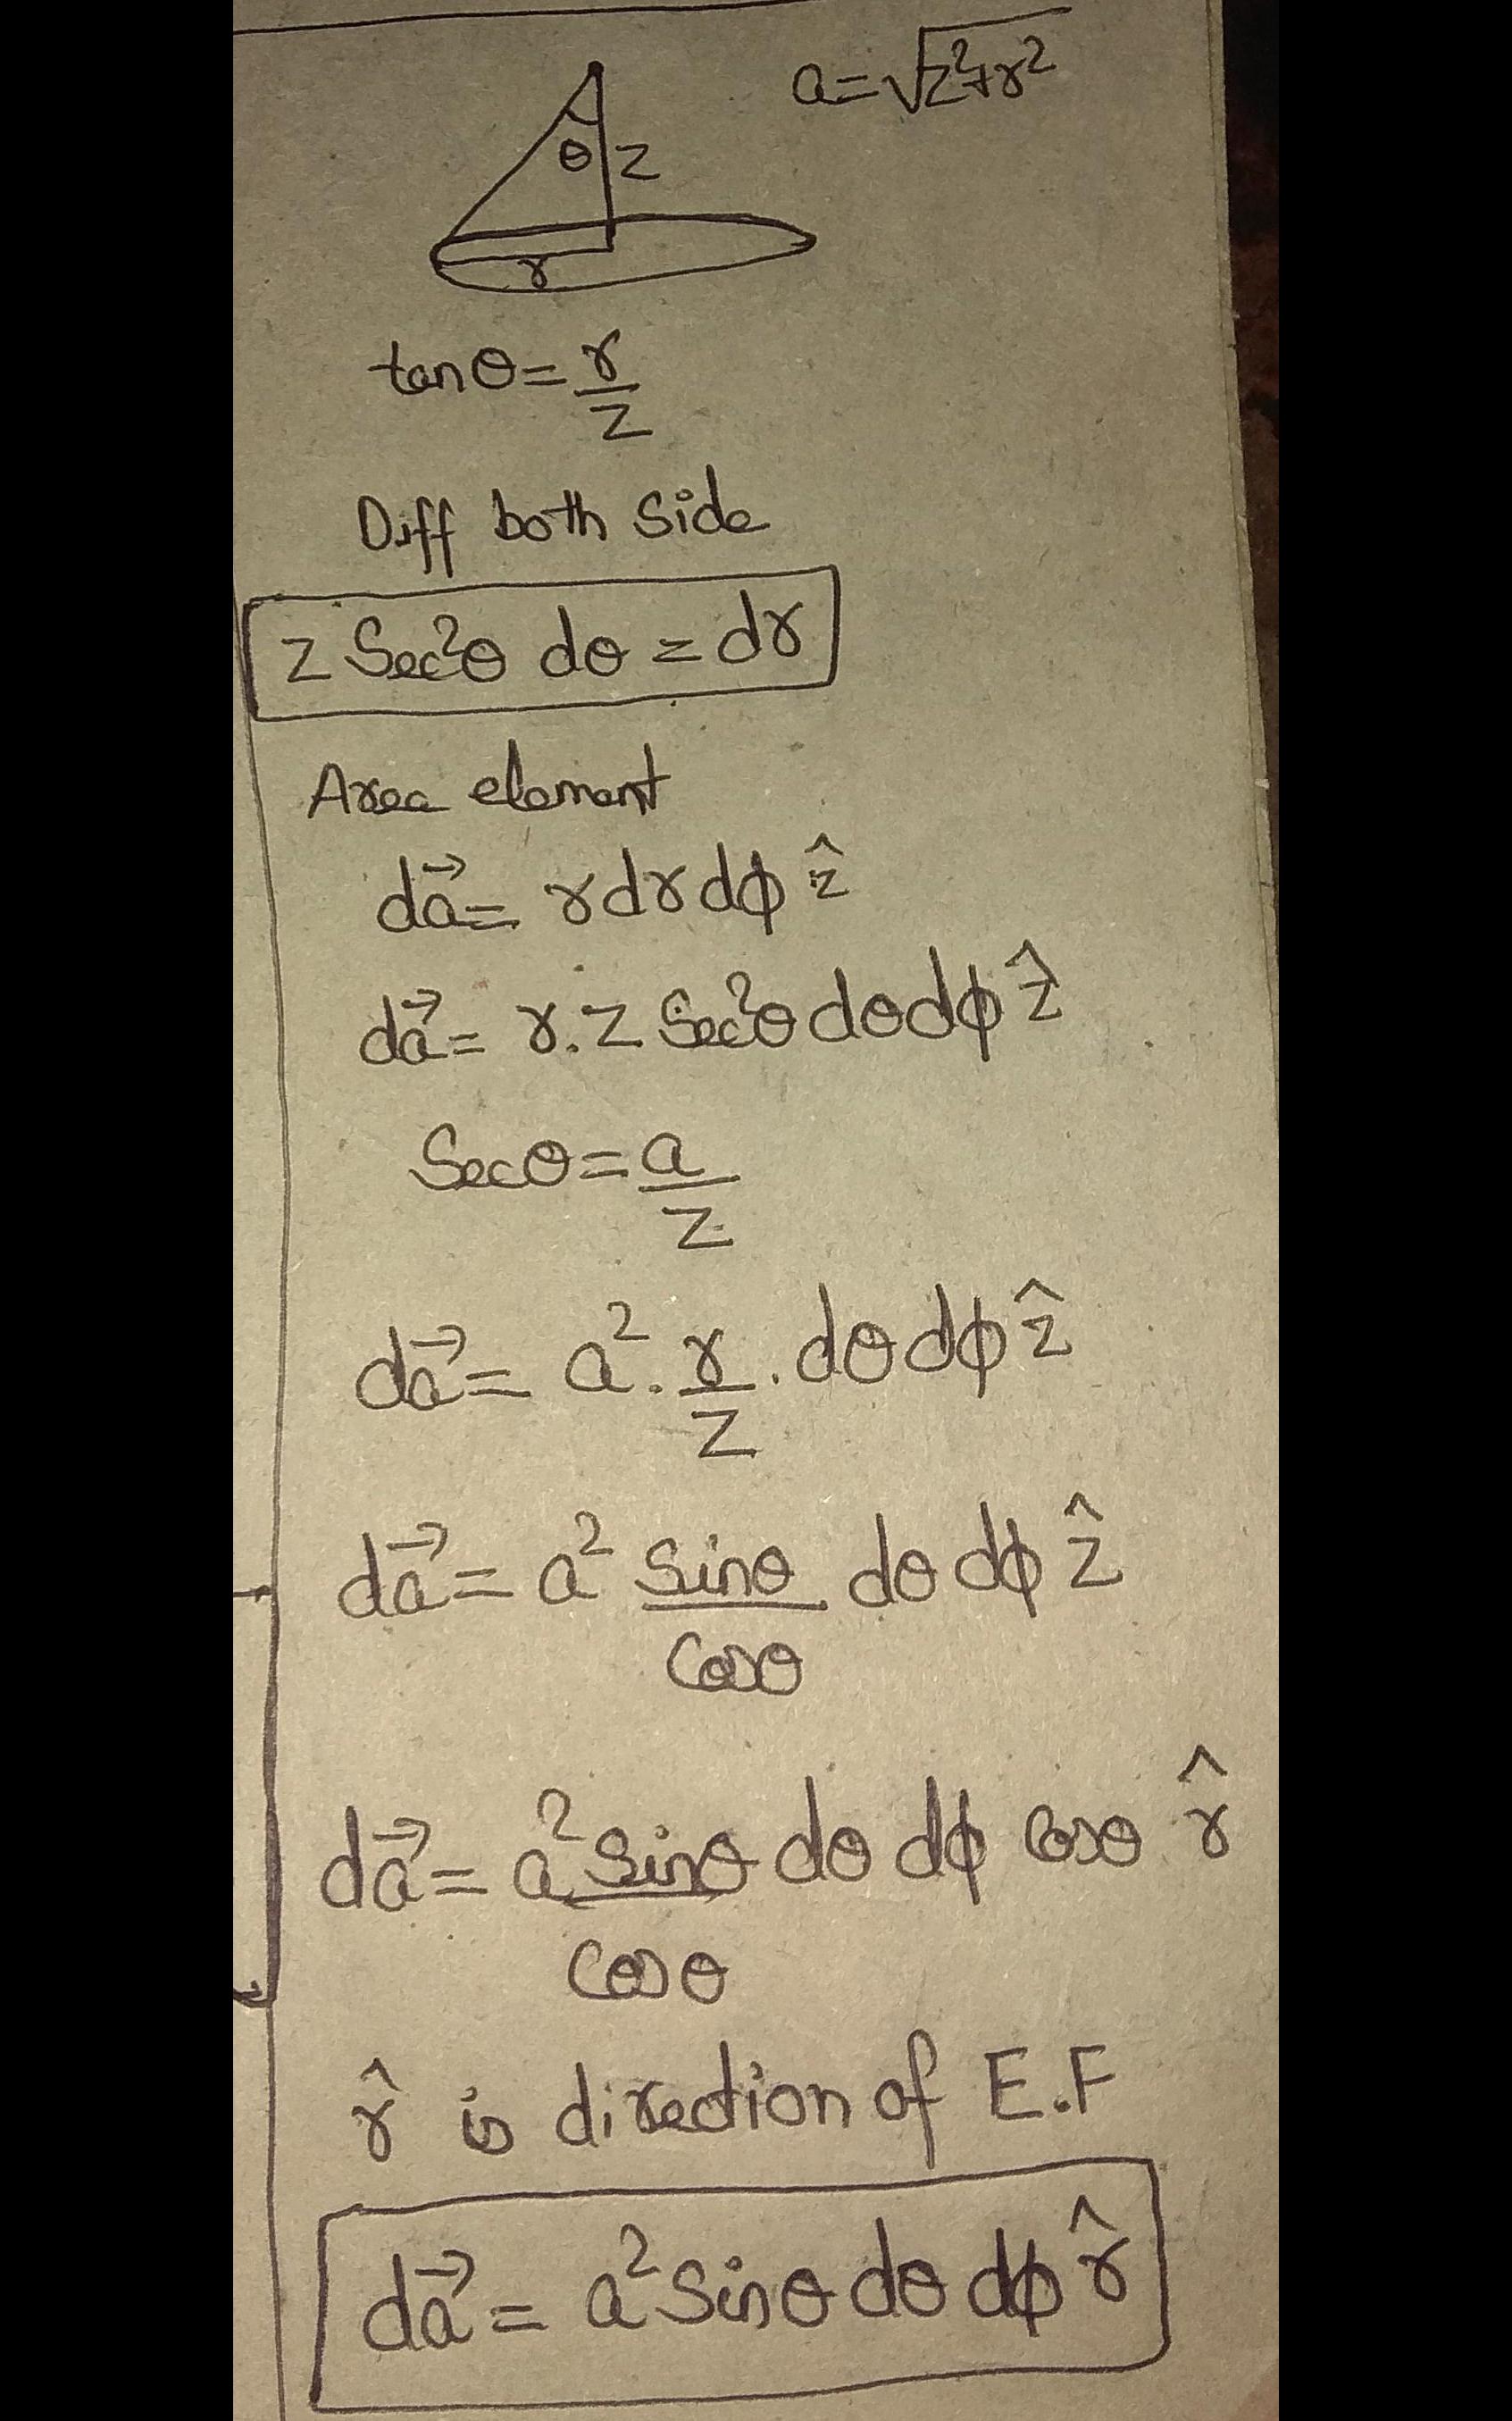 a=√z²+r²
θ z
r
tanθ= r/z
Diff both side
z Sec²θ dθ = dr
Area element
da⃗= rdrdϕ ẑ
da⃗= r.z Sec²θ dθdϕ ẑ
Secθ= a/z
da⃗= a². r/z . dθdϕ ẑ
da⃗= a² sinθ/cosθ dθ dϕ ẑ
da⃗= a² sinθ/cosθ dθ dϕ cosθ r̂
r̂ is direction of E.F
da⃗= a² sinθ dθ dϕ r̂